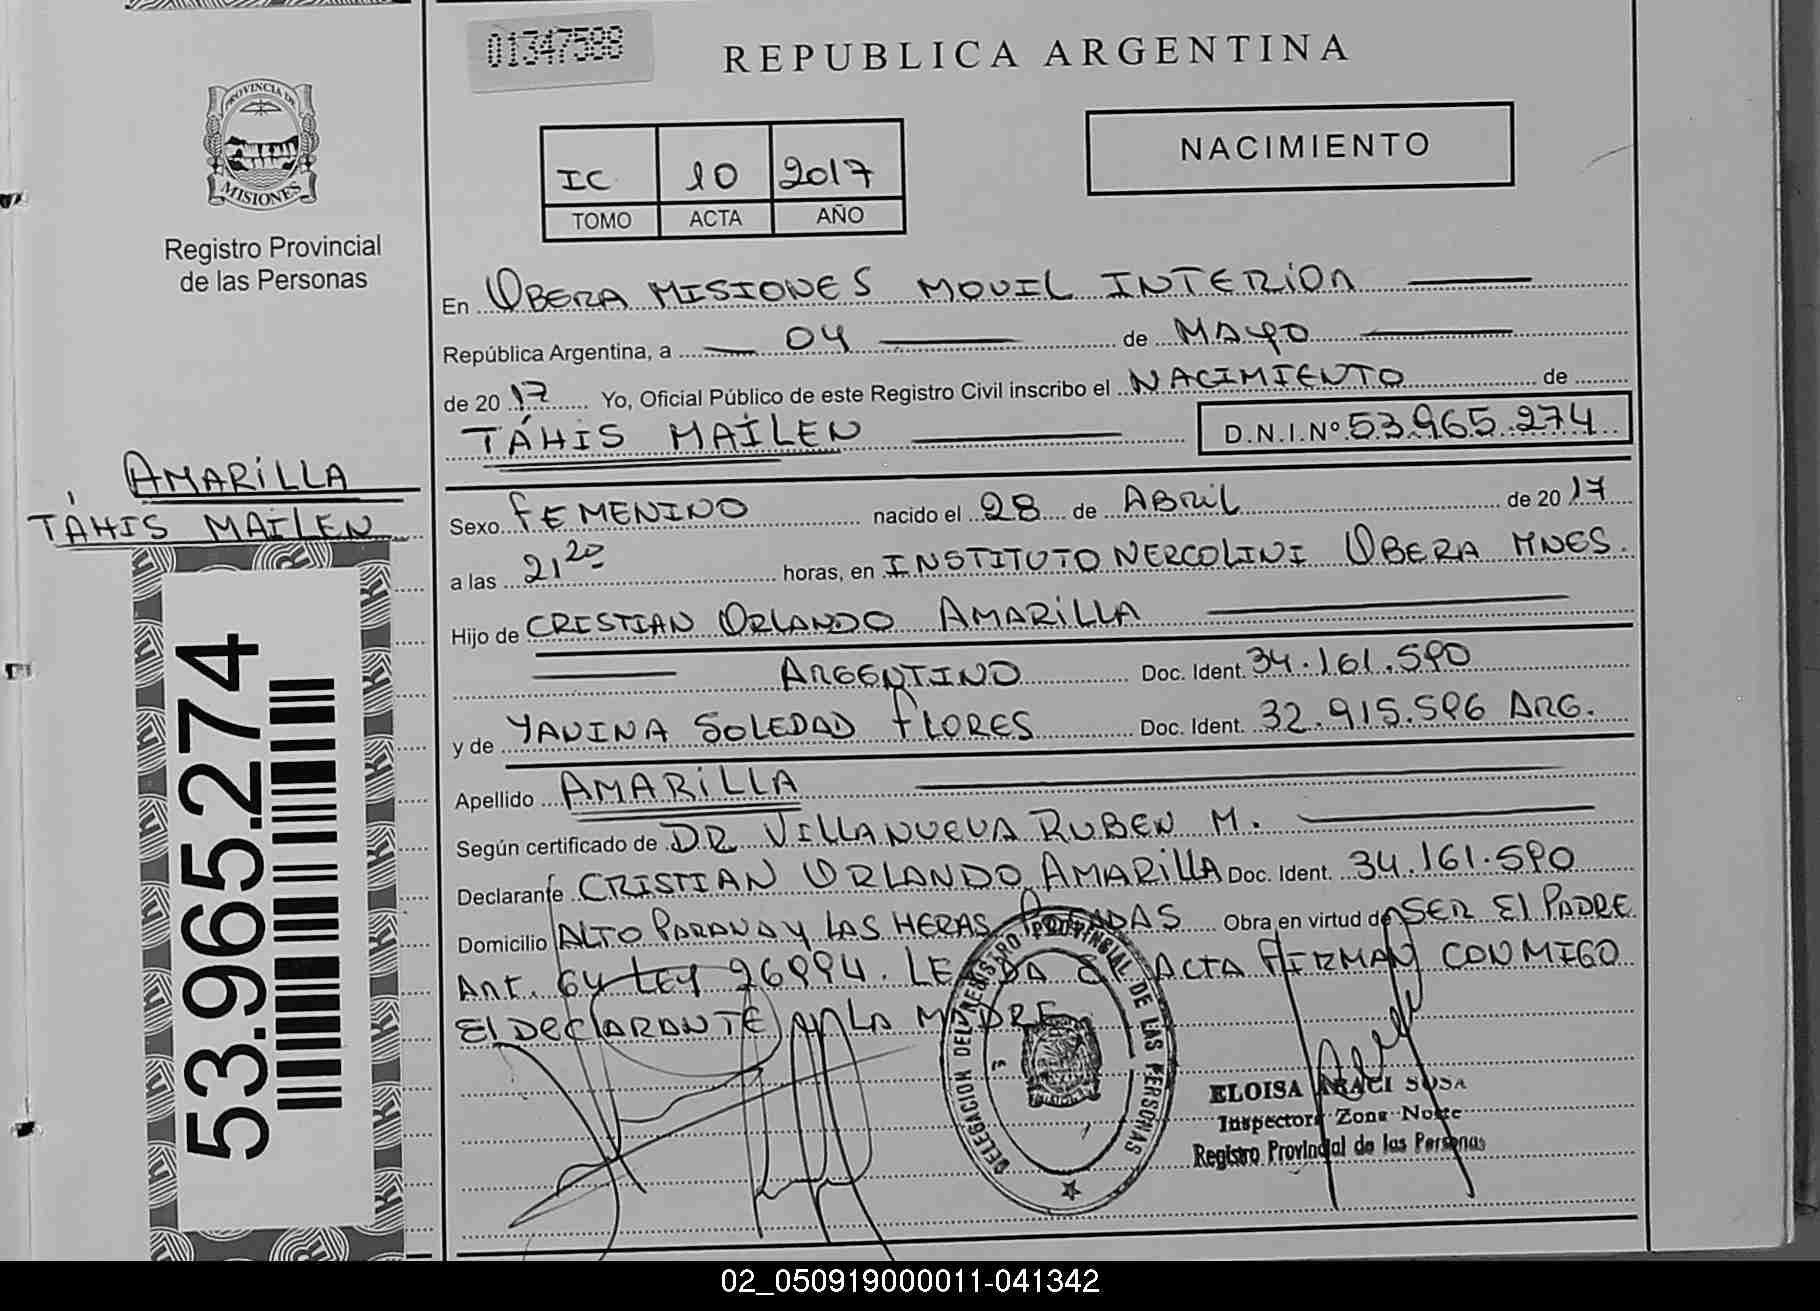 01347588
REPUBLICA ARGENTINA
PROVINCIA DE
MISIONES
Registro Provincial
de las Personas
NACIMIENTO
IC 10 2017
TOMO ACTA AÑO
En OBERA MISIONES MOVIL INTERIOR
República Argentina, a 04 de MAYO
de 2017 Yo, Oficial Público de este Registro Civil inscribo el NACIMIENTO de
TÁHIS MAÍLEN D.N.I.Nº 53.965.274
AMARILLA
TÁHIS MAÍLEN
53.965.274
Sexo FEMENINO nacido el 28 de ABRIL de 2017
a las 21 20 horas, en INSTITUTO NERCOLINI OBERA MNES.
Hijo de CRISTIAN ORLANDO AMARILLA
ARGENTINO Doc. Ident. 34.161.590
y de YANINA SOLEDAD FLORES Doc. Ident. 32.915.596 ARG.
Apellido AMARILLA
Según certificado de DR VILLANUEVA RUBEN M.
Declarante CRISTIAN ORLANDO AMARILLA Doc. Ident. 34.161.590
Domicilio ALTO PARANA Y LAS HERAS POSADAS Obra en virtud de SER El PADRE
Art. 64 LEY 26994. LEIDA EL ACTA FIRMAN CONMIGO
El DECLARANTE Y LA MADRE
DELEGACION DEL REGISTRO PROVINCIAL DE LAS PERSONAS
ELOISA ARACI SOSA
Inspectora Zona Norte
Registro Provincial de las Personas
02_050919000011-041342